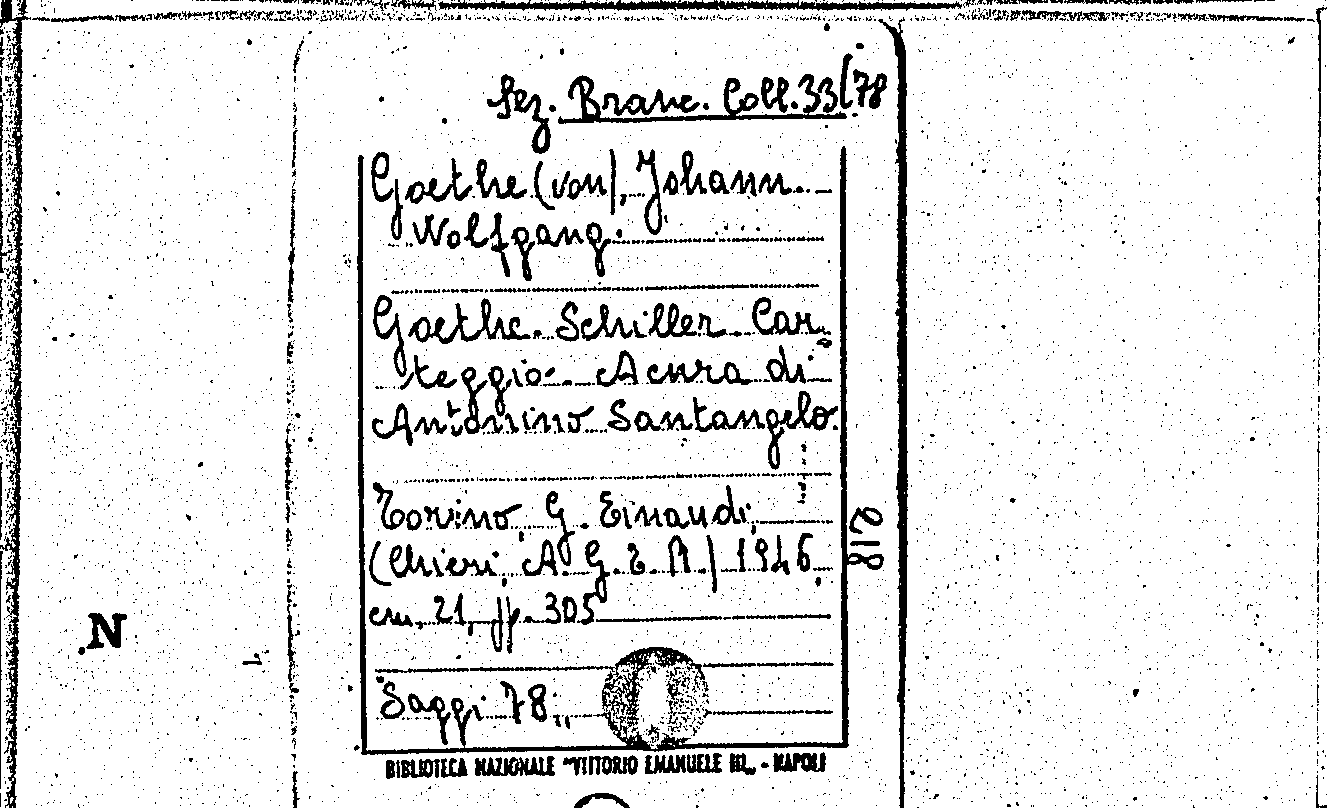 Sez. Branc. Coll. 33(78
Goethe (von), Johann
Wolfgang.
Goethe. Schiller. Car
teggio. A cura di
Antonino Santangelo.
Torino, G. Einaudi,
(Chieri, A. G. E. R.) 1946,
cm. 21, pp. 305
Saggi 78,,
218
N
BIBLIOTECA NAZIONALE "VITTORIO EMANUELE III„ - NAPOLI